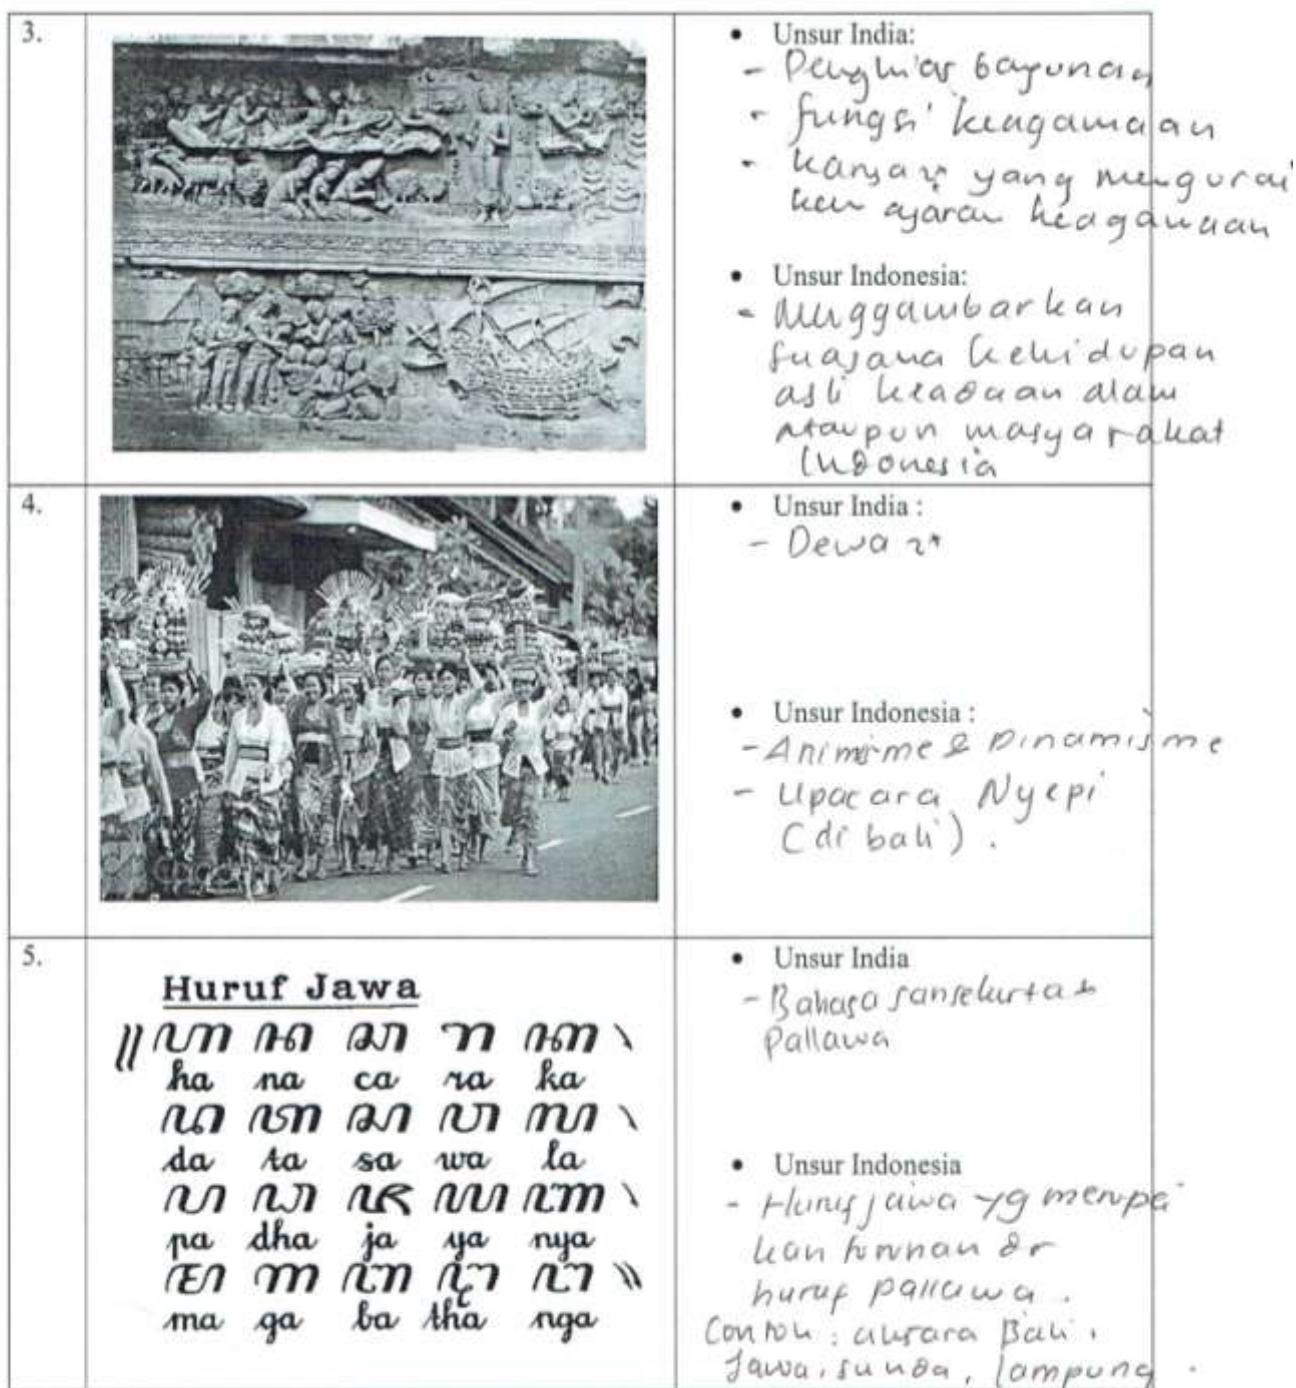 3.
• Unsur India:
- Penghias bagunan
- fungsi keagamaan
- yang mengurai
kan ajaran keagamaan
• Unsur Indonesia:
- Menggambarkan
suasana kehidupan
asli keadaan alam
ataupun masyarakat
Indonesia
4.
• Unsur India :
- Dewa 2*
• Unsur Indonesia :
- Animisme & Dinamisme
- Upacara Nyepi
(di bali).
5.
Huruf Jawa
ꦲ ꦤ ꦕ ꦫ ꦏ
ha na ca ra ka
ꦢ ꦠ ꦱ ꦮ ꦭ
da ta sa wa la
ꦥ ꦝ ꦗ ꦪ ꦚ
pa dha ja ya nya
ꦩ ꦒ ꦧ ꦛ ꦔ
ma ga ba tha nga
• Unsur India
- Bahasa sansekurta &
Pallawa
• Unsur Indonesia
- Huruf jawa yg merupa
kan turunan dr
huruf pallawa.
Contoh : aksara Bali,
Jawa, sunda, lampung.